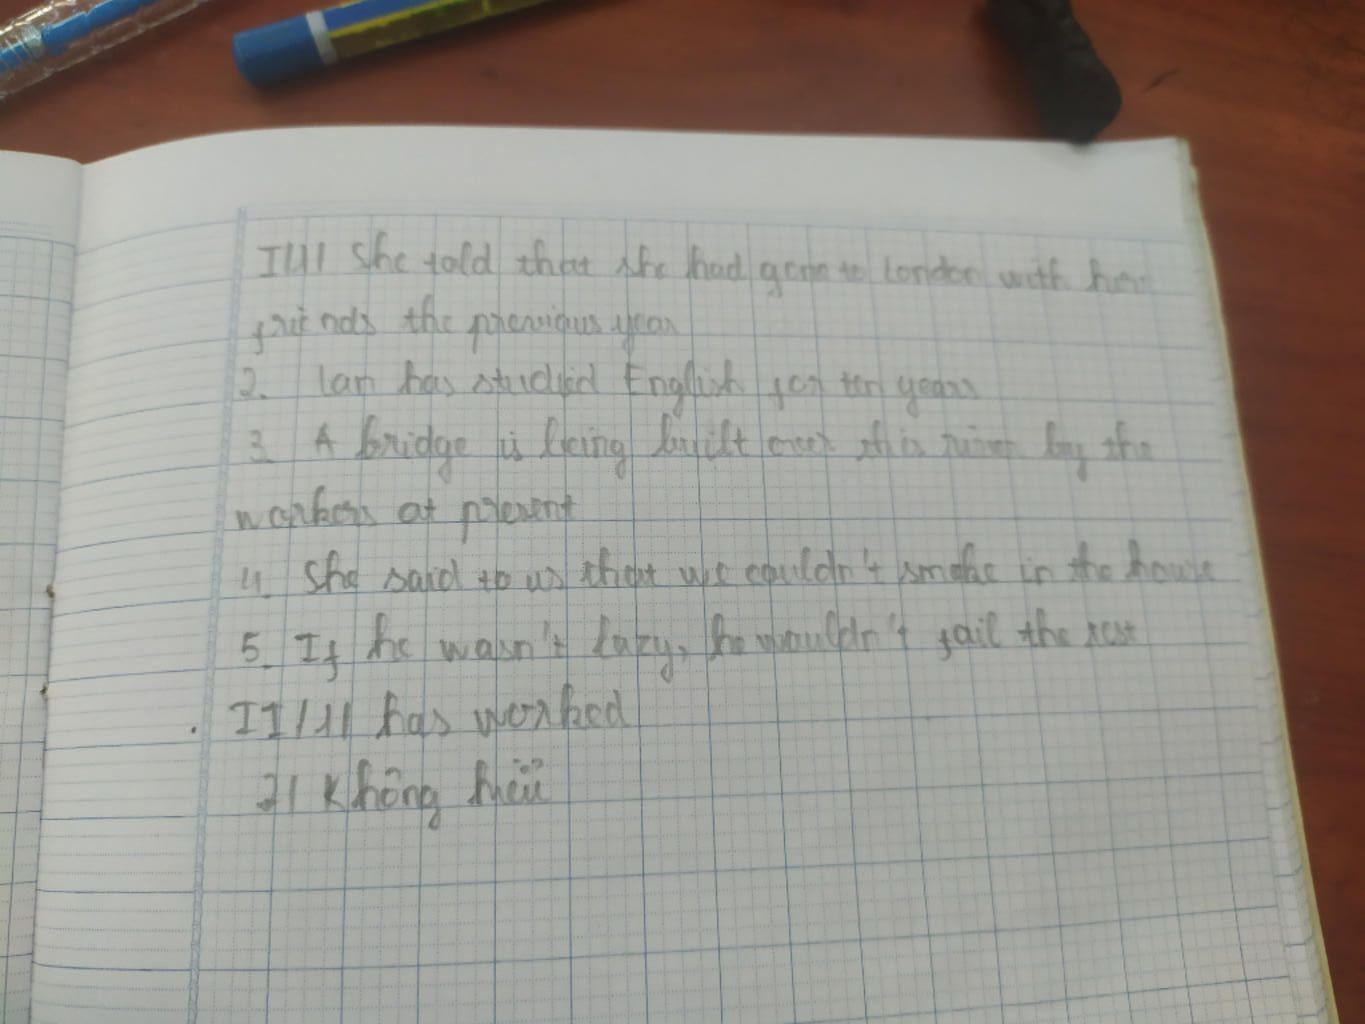 I/1/ She told that she had gone to London with her
friends the previous year
2. Lan has studied English for ten years
3. A bridge is being built over this river by the
workers at present
4. She said to us that we couldn't smoke in the house
5. If he wasn't lazy, he wouldn't fail the test
II/1/ has worked
2/ Không hiểu